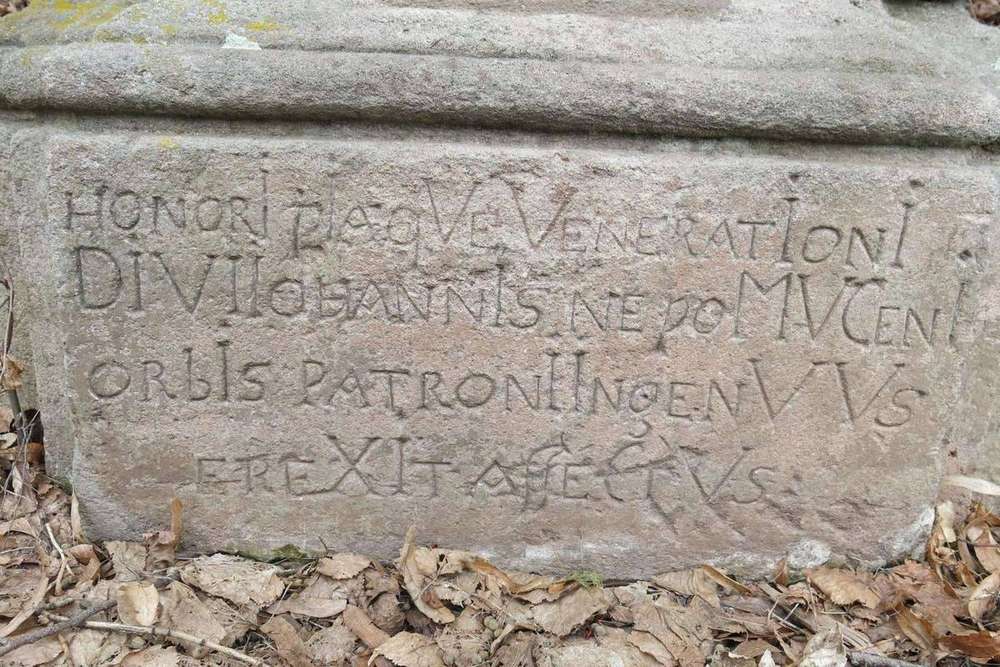 HONORI pIÆqVE VENERATIONI
DIVI IOHANNIS NEpOMVCENI
ORbIS PATRONI INgENVVS
EREXIT AffECTVS